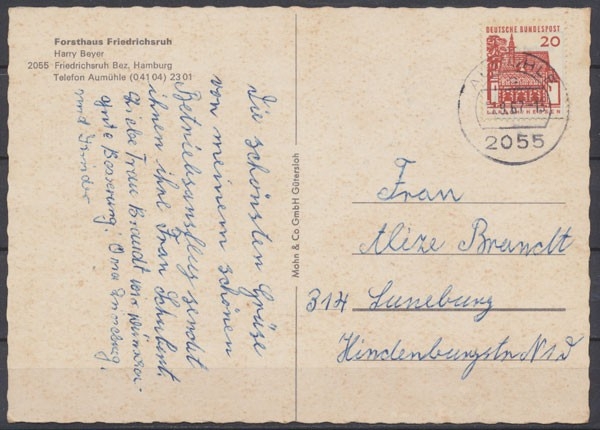 Forsthaus Friedrichsruh
Harry Beyer
2055 Friedrichsruh Bez. Hamburg
Telefon Aumühle (041 04) 23 01
die schönsten Grüße
von meinem schönen
Betriebsausflug sendet
ihnen ihre Frau
Liebe Frau Brandt wir wünschen
gute Besserung.
und Kinder
Mohn & Co GmbH Gütersloh
DEUTSCHE BUNDESPOST
20
AUMÜHLE
2055
Frau
Alize Brandt
314 Luneburg
Hindenburgstr N 12